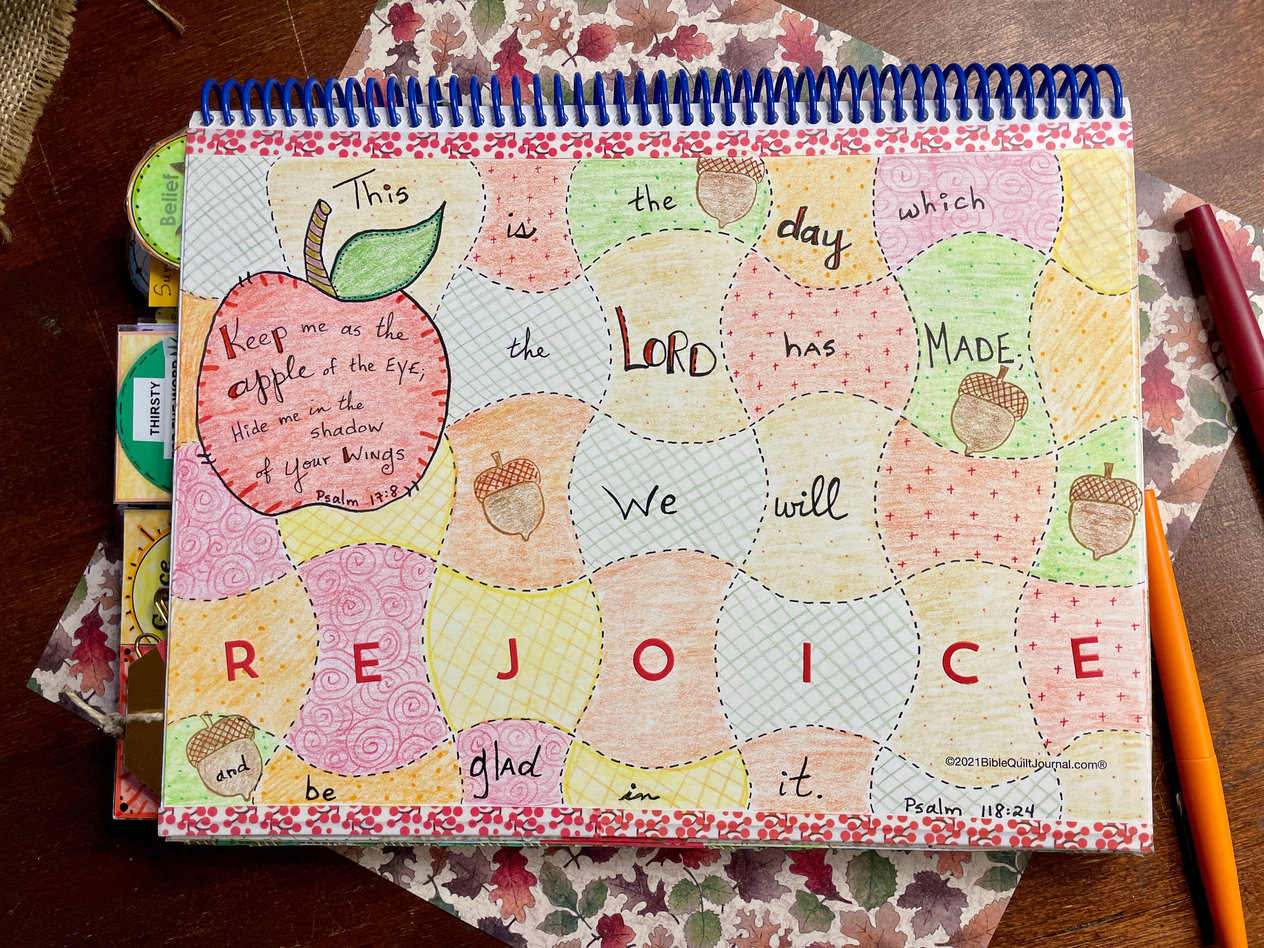 This is the day which
Keep me as the
apple of the EYE;
Hide me in the
shadow
of Your Wings
Psalm 17:8
the LORD has MADE,
We will
REJOICE
and be glAd in it.
©2021BibleQuiltJournal.com®
Psalm 118:24
Belief
THIRSTY